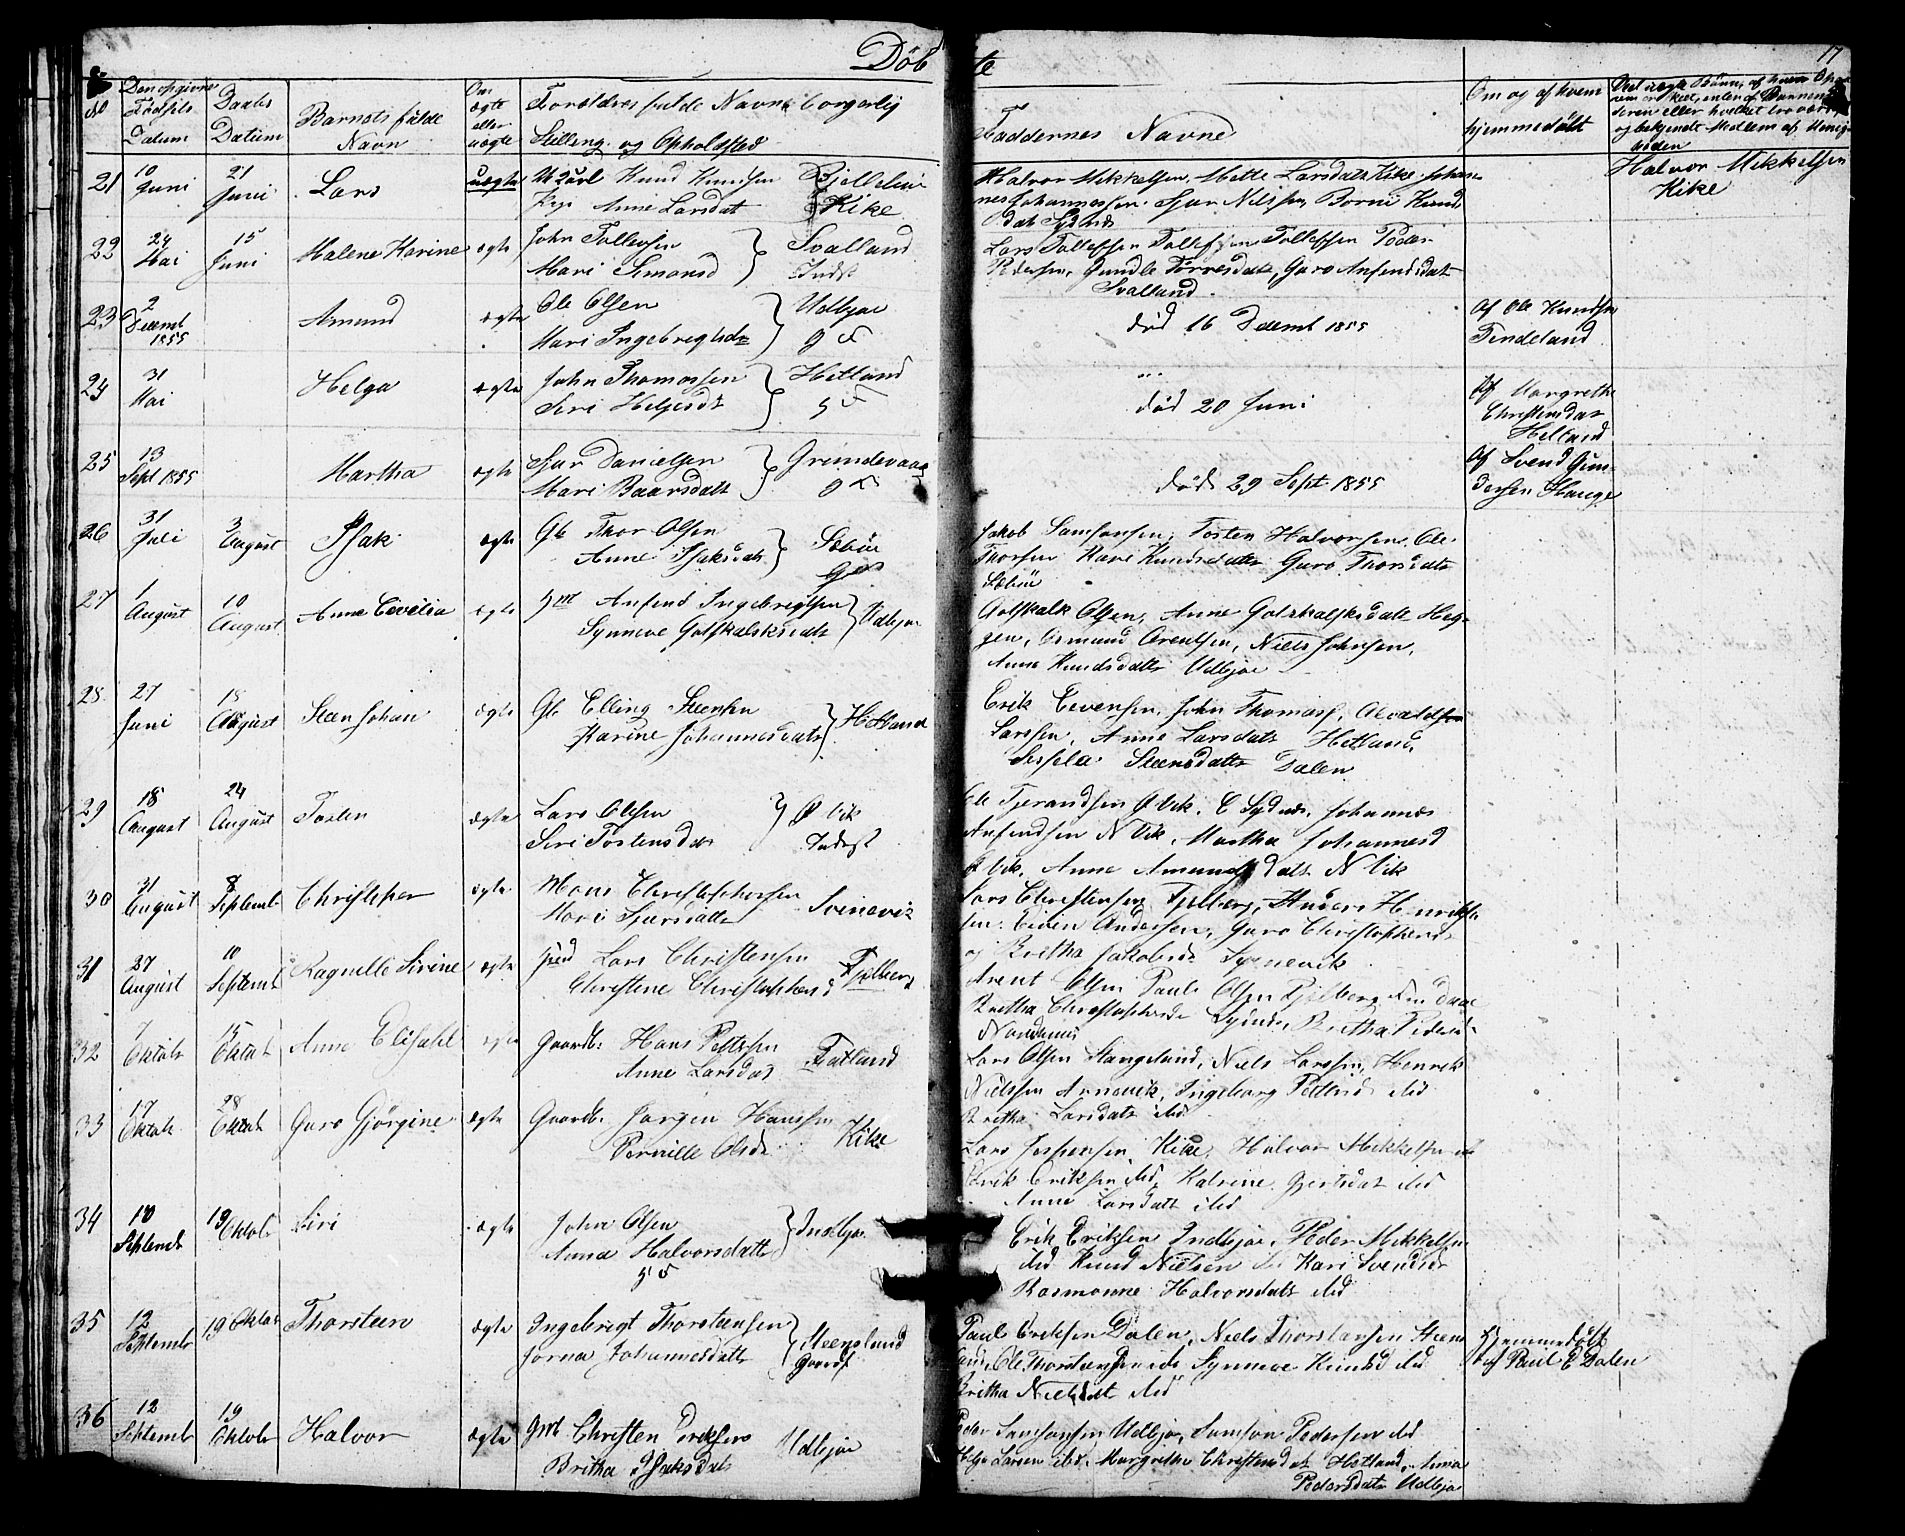 Døbte
17
No
Den opgivne Fødsels Datum
Daabs Datum
Barnets fulde Navn
Om ægte eller uægte
Forældres fulde Navne borgerlig Stilling og Opholdsted
Faddernes Navne
Om og af hvem hjemmedøbt
21 10 Juni 21 Juni Lars uægte Knud Knudsen
Anne Larsdat Kike
Halvor Mikkelsen, Mette Larsdatt Kike, Johan-
nes Johannessen Nilsen, Knud
Halvor Mikkelsen
Kike
22 24 Mai 15 Juni Malene Karine ægte John Tollevsen
Mari Simonsd Svalland
Indst
Lars Tollefsen Tollef Tollefsen Peder
Pedersen, Gundle Torresdatt, Guro Anfindsdat
Svalland
23 2 Decemb 1855 Amund ægte Ole Olsen
Mari Ingebregtsdr Udbjoe
død 16 Decemb 1855
Af Ole Knudsen
Tindeland
24 31 Mai Helga ægte John Thomassen
Siri Helgesdt Hetland
død 20 Juni
Af Margrethe
Christensdat
Hetland
25 13 Sept 1855 Martha ægte Sjur Danielsen
Mari Baarsdatt Grindevaag
død 29 Sept 1855
Af Svend Gun-
dersen Hauge
26 31 Juli 3 August Isak ægte Gb Thor Olsen
Anne Isaksdatt Sæbøe
Jakob Samsonsen, Tosten Halvorsen, Ole
Thorsen Kari Knudsdatt Guro Thorsdatt
Sæbøe
27 1 August 10 August Anne Cecilia ægte Anfind Ingebrigtsen
Synneve Gotskalksdatt Udbjoe
Gotskalk Olsen, Anne Gotskalksdatt Hog-
gen, Osmund Arentsen, Niels Johnsen,
Anne Knudsdatt Udbjoe
28 27 Juni 18 August Steen Johan ægte Gb Elling Steensen
Karine Johannesdatt Hetland
Erik Evensen, John Thomass,
Larssen, Anne Larsdatt Hetland,
Steensdatt Dalen
29 18 August 24 August Tosten ægte Lars Olsen
Siri Tostensdat Ø Vik
Indst
Ole Tjerandsen Ø Vik, E Sydnæs, Johannes
Anfindsen N Vik, Martha Johannesd
Ø Vik, Anne Amundsdatt N Vik
30 31 August 8 Septemb Christopher ægte Mons Christophersen
Mari Sjursdatt Svinevig
Lars Christensen Fjelberg, Anders Henrik-
sen, Eivin Andersen, Guro Christophersd
og Bretha Jakobsd Synnevik
31 27 August 10 Septemb Ragnilde Sirine ægte Lars Christensen
Christine Christophersd Fjelberg
Arent Olsen Paul Olsen Fjelberg
Bretha Christophersd Sydnes, Bretha Pedersd
32 7 Oktob 15 Oktob Anne Elisabet ægte Gaardb. Hans Pettersen
Anne Larsdat Fatland
Lars Olsen Stangeland, Niels Larssen, Henrik
Nielssen Arnevik, Ingeborg Pettersd ibid
Bretha Larsdatt ibid
33 17 Oktob 28 Oktob Guro Gjørgine ægte Gaardb. Jørgen Hanssen
Pernille Olsdr Kike
Lars Jespersen Kike, Halvor Mikkelsen ib
Erik Eriksen ibid, Katrine Gjertsdat ibid
Anne Larsdatt ibid
34 10 Septemb 19 Oktob Siri ægte John Olsen
Anna Halvorsdatt Indbjoe
Erik Eriksen Indbjoe, Peder Mikkelsen
ibid Knud Nielsen ibid Kari Svendsd
Rasmonne Halvorsdatt ibid
35 12 Septemb 19 Oktob Thorsteen ægte Ingebregt Thorsteensen
Jorna Johannesdatt Steensland
Gaardf
Paul Eriksen Dalen, Niels Thorstensen Steens
land, Ole Thorsteensen ibid Synneve Knudsd ibid
Britha Nielsdatt ibid
Hjemmedøbt
af Paul E Dalen
36 12 Septemb 19 Oktob Halvor ægte Gm Christen Eriksen
Britha Isaksdatt Udbjoe
Peder Samsonsen Udbjoe, Samson Pedersen ibid
Helge Larsen ibid, Margrethe Christensdat Hetland, Anna
Pedersdatt Udbjoe